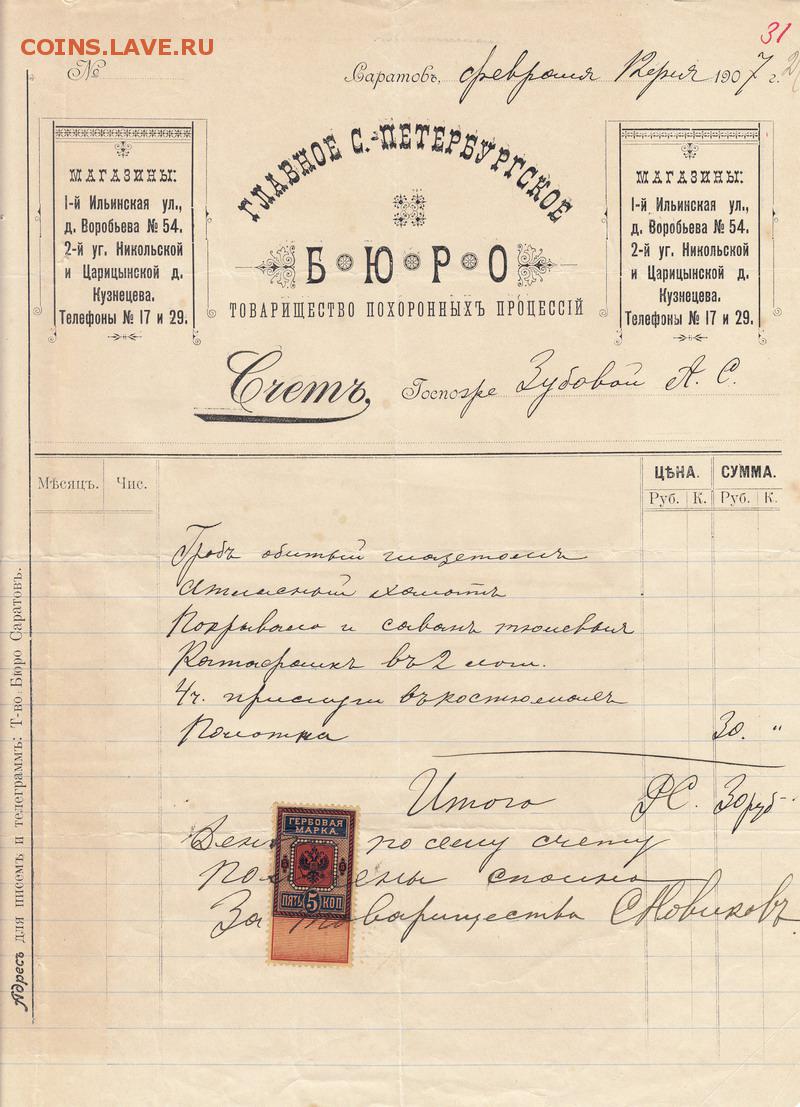 COINS.LAVE.RU
31
№
Саратовъ, февраля 1907 г.
МАГАЗИНЫ:
1-й Ильинская ул.,
д. Воробьева № 54.
2-й уг. Никольской
и Царицынской д.
Кузнецева.
Телефоны № 17 и 29.
ГЛАВНОЕ С.-ПЕТЕРБУРГСКОЕ
БЮРО
ТОВАРИЩЕСТВО ПОХОРОННЫХЪ ПРОЦЕССІЙ
МАГАЗИНЫ:
1-й Ильинская ул.,
д. Воробьева № 54.
2-й уг. Никольской
и Царицынской д.
Кузнецева.
Телефоны № 17 и 29.
Счетъ, Госпоже Зубовой А. С.
Мѣсяцъ. Чис. ЦѢНА. СУММА.
Руб. К. Руб. К.
Гробъ обитый глазетомъ
Атласный
Покрывало и саванъ тюлевыя
Катафалкъ въ 2 лош.
4 ч. прислуги въ костюмахъ
30. "
Итого РС. 30 руб
по сему счету
сполна
За Товарищество С Новиковъ
ГЕРБОВАЯ
МАРКА
5 5
ПЯТЬ 5 КОП
Адресъ для писемъ и телеграммъ: Т-во Бюро Саратовъ.